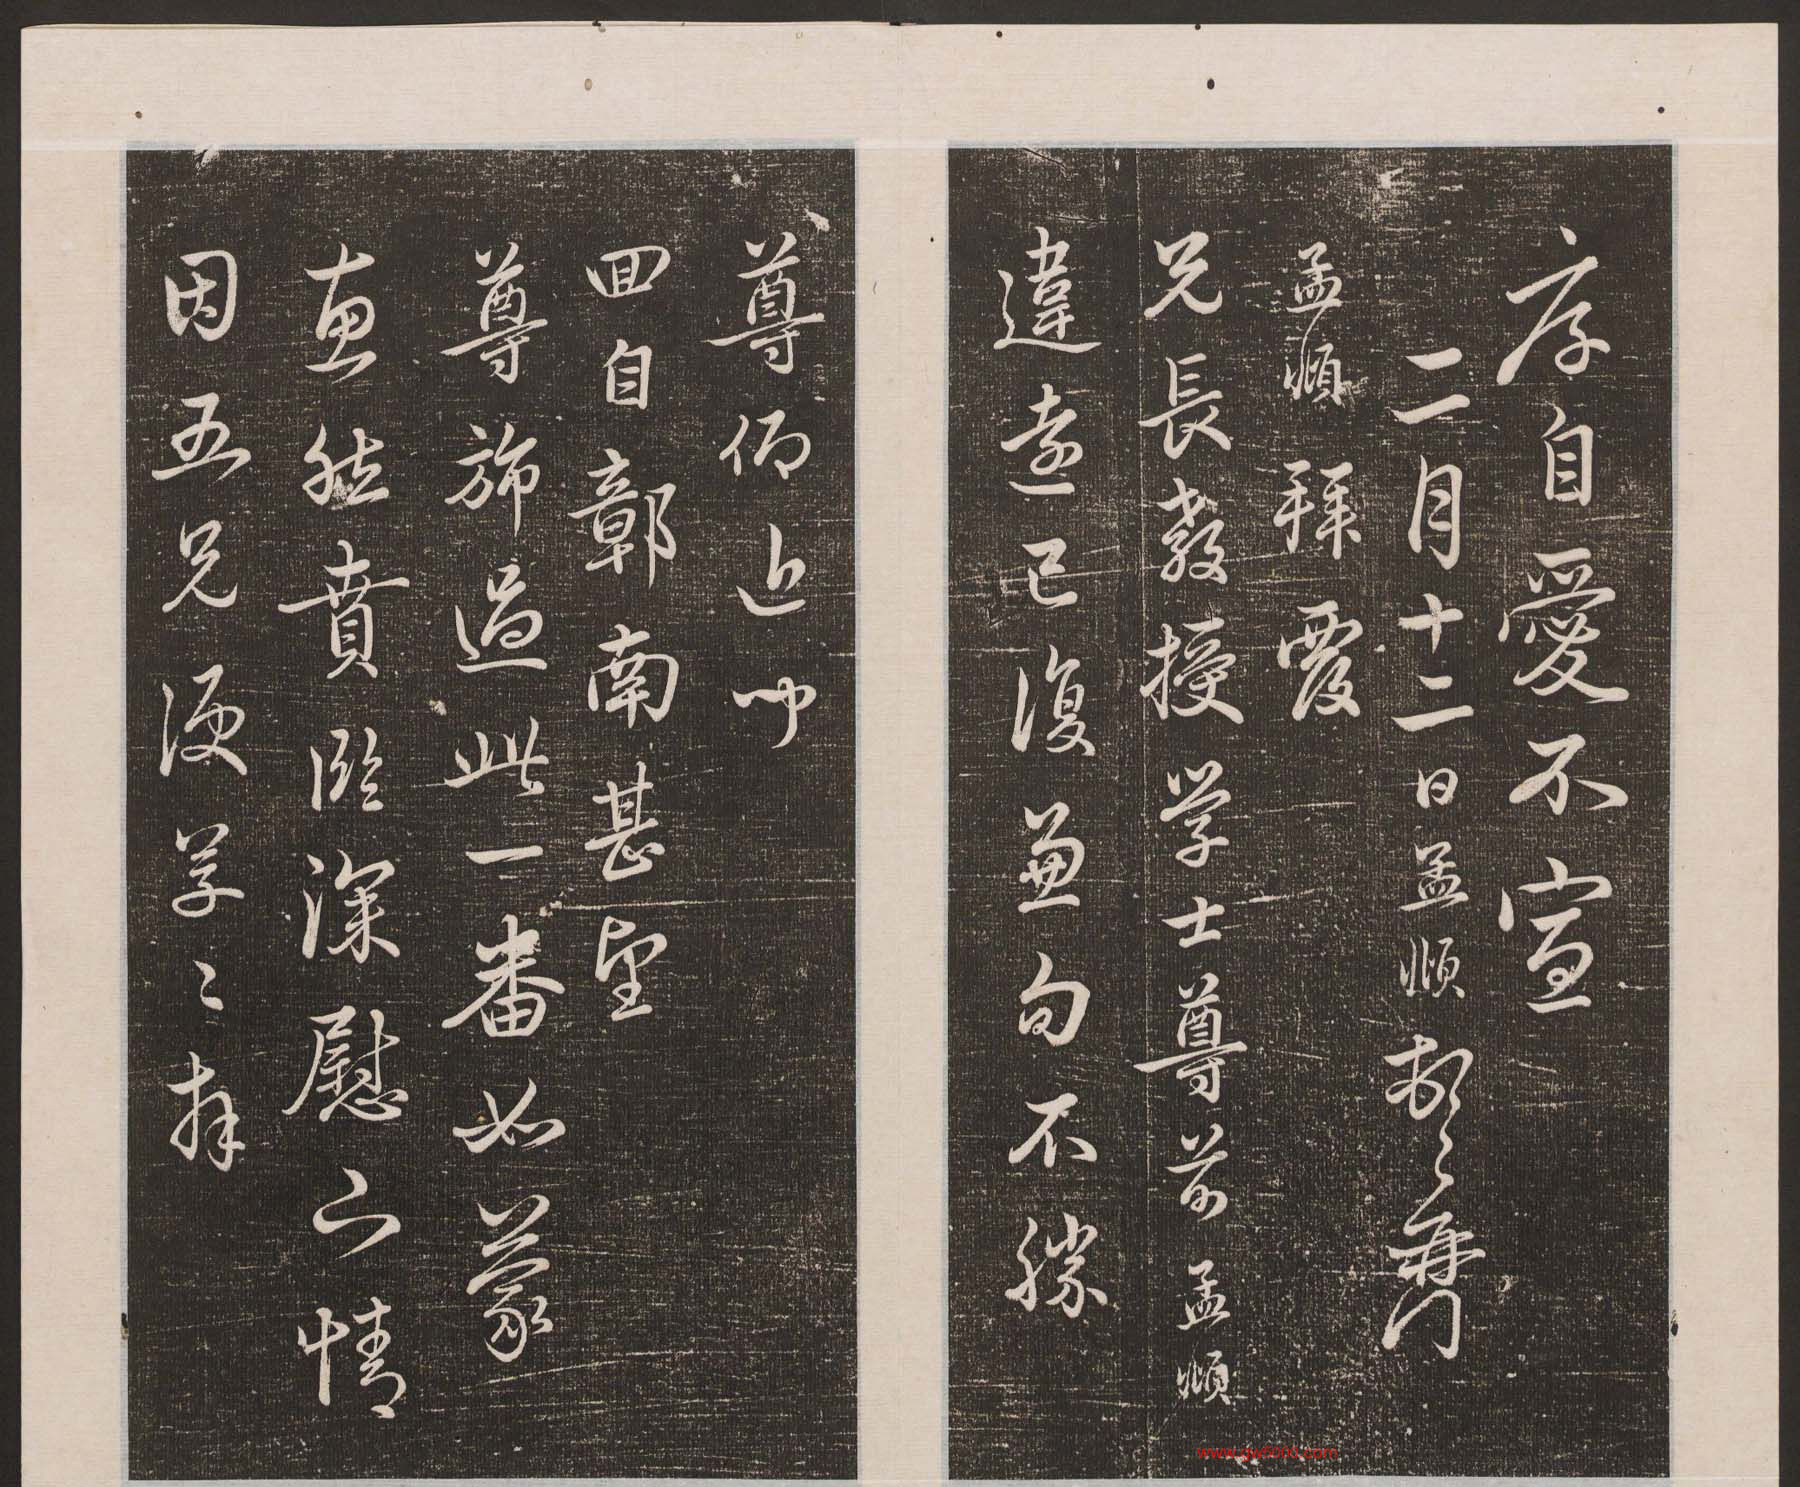 序自愛不宣
二月十二日孟頫
孟頫拜覆
兄長教授學士尊前孟頫
違遠已復兼旬不勝
尊仰近聞
回自鄣南甚望
尊旆過此一番如蒙
惠然賁臨深慰下情
因五兄便草〻拜